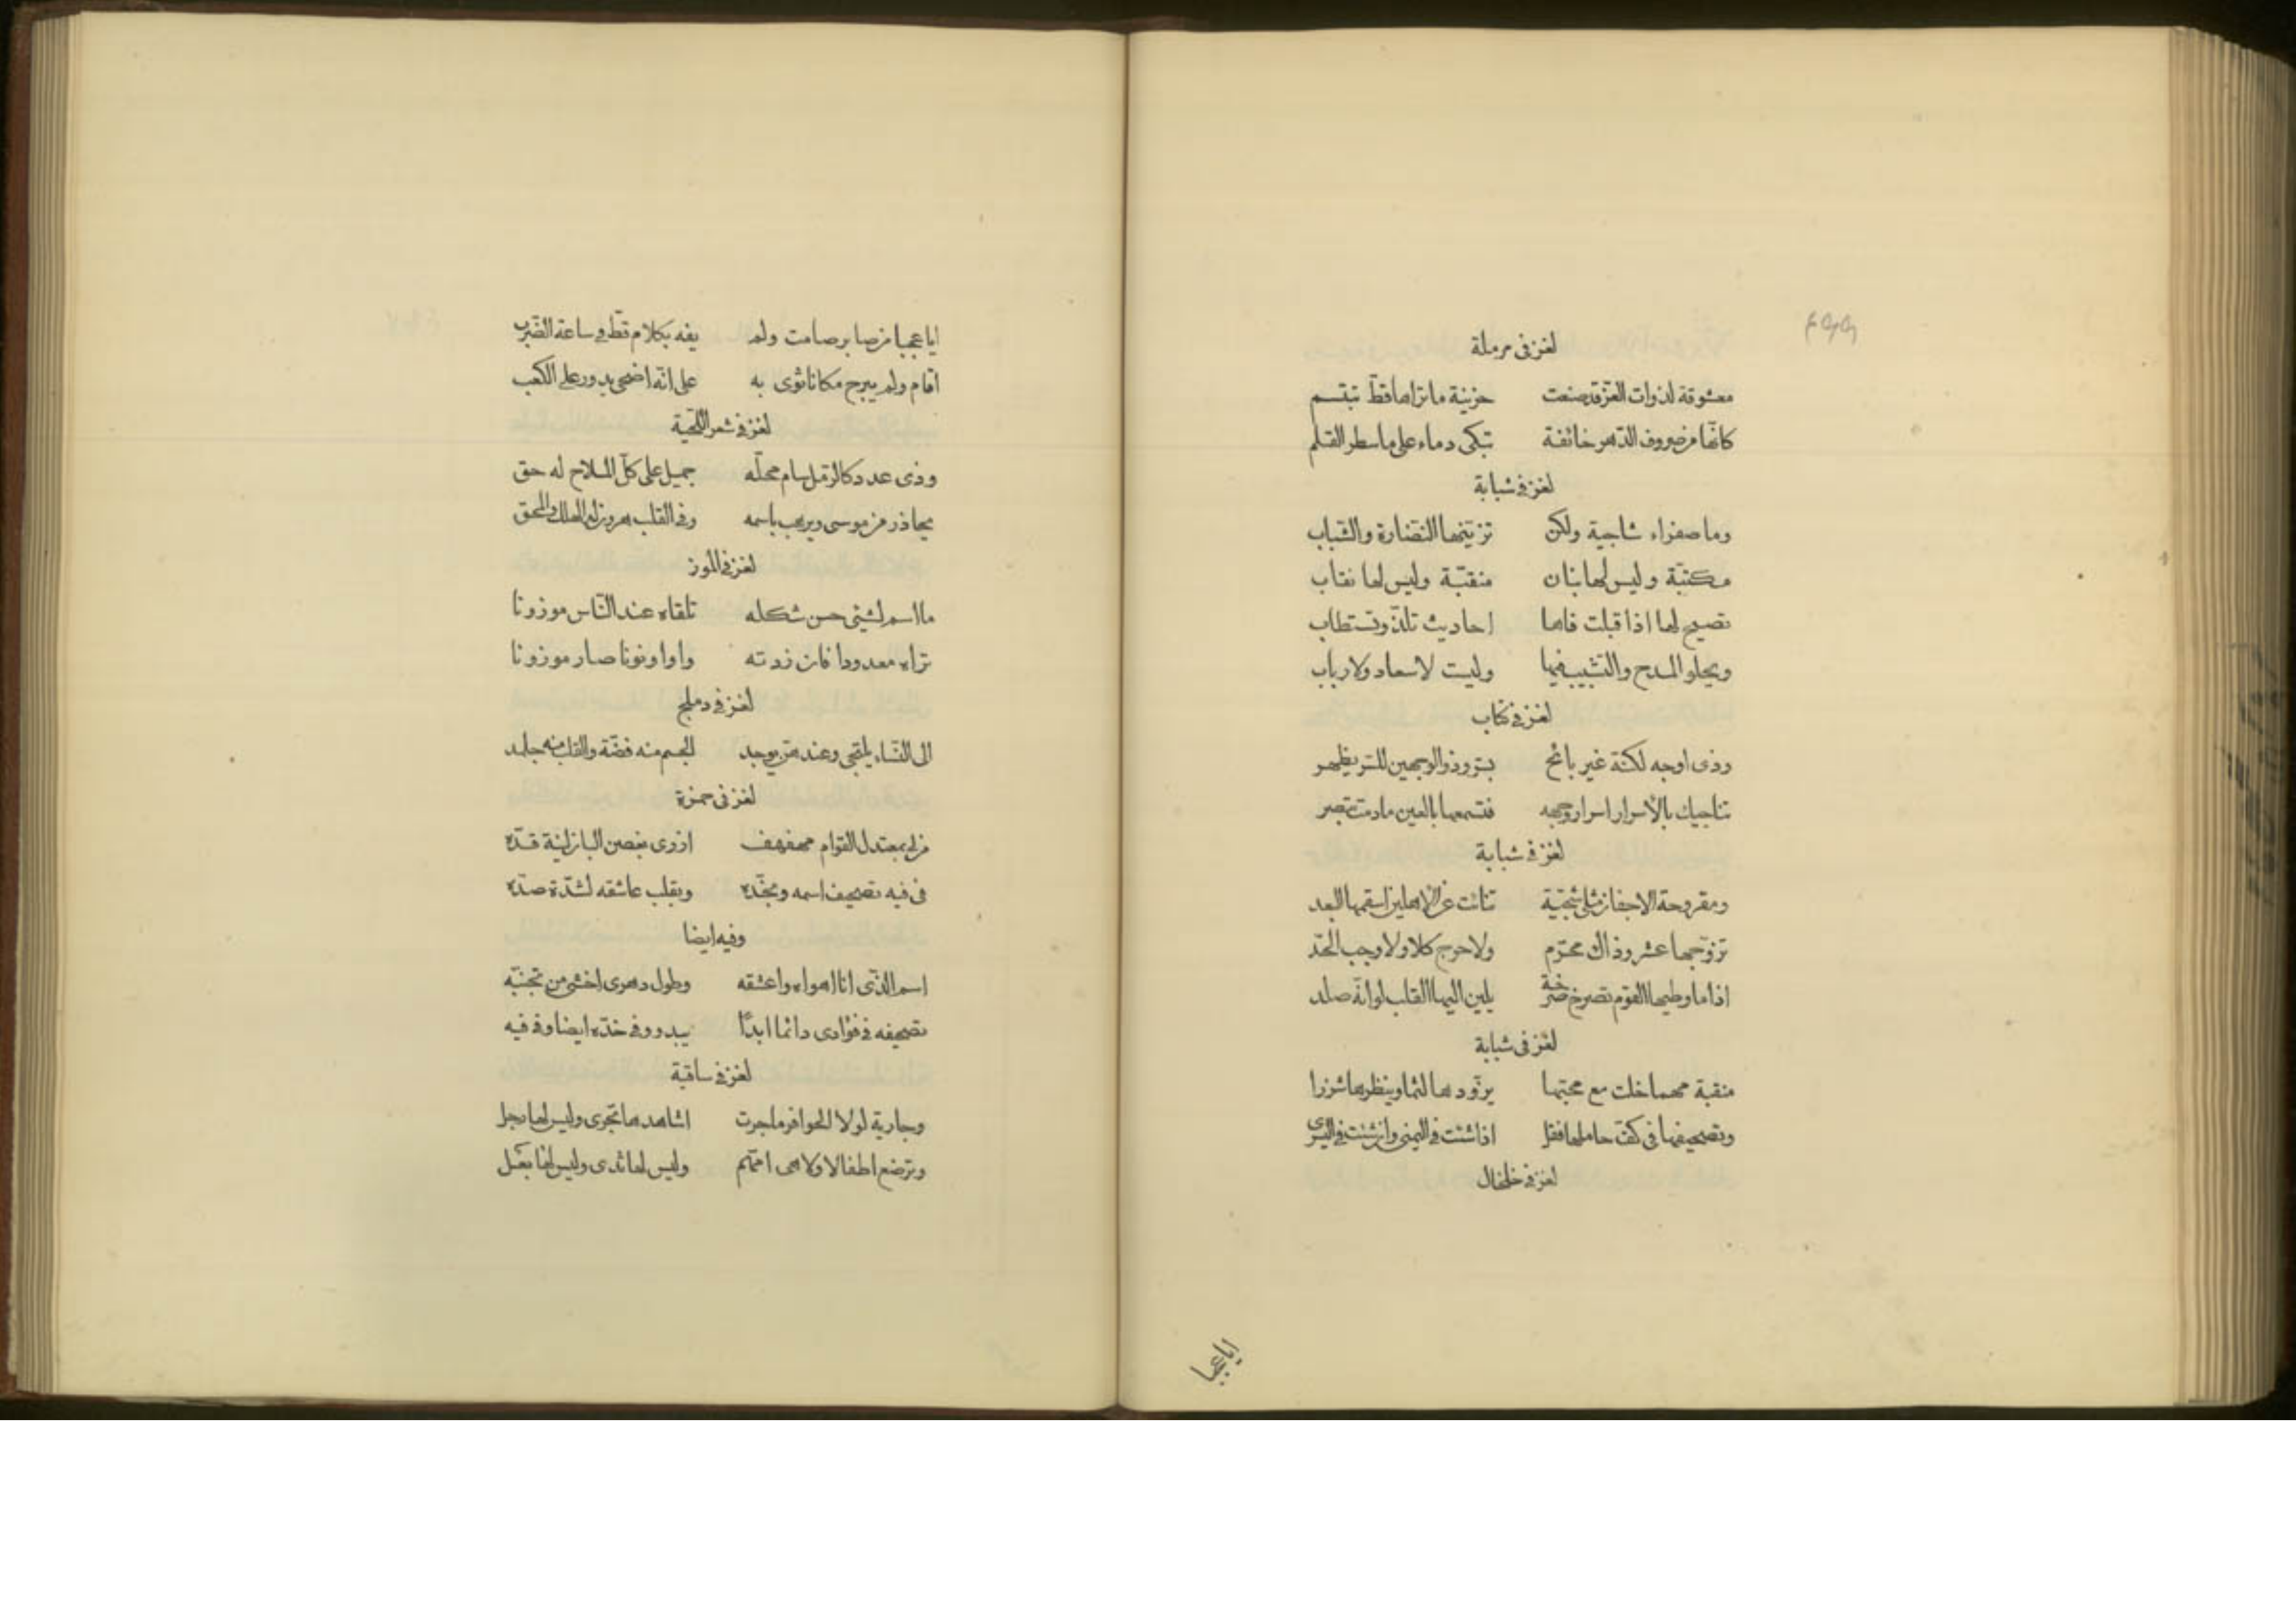 لغز فى مرملة
معشوقة لذوات العزّ قد صنعت حزينة ما تراها قطّ تبتسم
كانّها من صروف الدّهر خائفة تبكى دماء على ما سطر القلم
لغز فى شبابة
وما صفراء شاجية ولكن تزيّنها النّضارة والشّباب
مكتبّة وليس لها بنان منقبّة وليس لها نقاب
تصيح لها اذا قبلت فاها احاديث تلذّ وتستطاب
ويحلو المدح والتّشبيب فيها وليست لا سعاد ولا رباب
لغز فى كتاب
وذى اوجه لكنّه غير بائح بسرّ وذو الوجهين للسّر يظهر
تناجيك بالأسرار اسرار وجهه فتسمعها بالعين ما دمت تبصر
لغز فى شبابة
ومقروحة الاجفان مثلى شجيّة تنائت عن الاهلين اسقمها البعد
تزوّجها عشر وذاك محرّم ولا حرج كلا ولا وجب الحدّ
اذا ما وطيها القوم تصرخ صرخة يلين اليها القلب لو انّه صلد
لغز فى شبابة
منقبة مهما خلت مع محبّها يزوّدها لثما وينظرها شزرا
وتصحيفها فى كفّ حاملها فقل اذا شئت فى اليمنى وان شئت فى اليسرى
لغز فى خلخال
ايا عجبا
ايا عجبا من صابر صامت ولم يفه بكلام قطّ فى ساعة الضّرب
اقام ولم يبرح مكانا ثوى به على انّه اضحى يدور على الكعب
لغز فى شعر اللّحية
وذى عدد كالرّمل سام محلّه جميل على كلّ الملاح له حق
يحاذر من موسى ويرهب باسمه وفى القلب هرون له الملك والمحق
لغز فى الموز
ما اسم لشيئ حسن شكله تلقاه عند النّاس موزونا
تراه معدودا فان زدته واوا ونونا صار موزونا
لغز فى دملج
الى النّساء يلتجى وعندهنّ يوجد الجسم منه فضّة والقلب منه جلمد
لغز فى حمزة
من لى بمعتدل القوام مهفهف ازرى بغصن البان لينة قدّه
فى فيه تصحيف اسمه وبخدّه وبقلب عاشقه لشدّة صدّه
وفيه ايضا
اسم الذّى انا اهواه واعشقه وطول دهرى اخشى من تجنبّه
تصحيفه فى فؤادى دائما ابدًا يبدو وفى خدّه ايضا وفى فيه
لغز فى ساقية
وجارية لولا الحوافر ما جرت اشاهدها تجرى وليس لها رجل
وترضع اطفالا ولا هى امّهم وليس لها ثدى وليس لها بعل